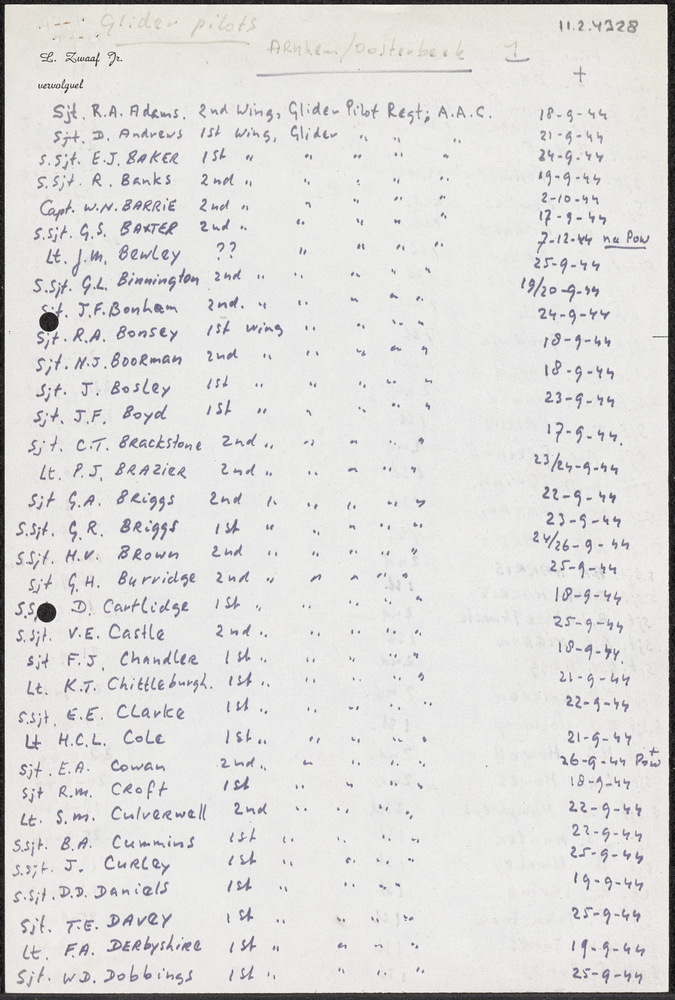 Glider pilots
11.2.4328
Arnhem/Oosterbeek 1
L. Zwaaf Jr.
vervolgvel
+
Sjt. R.A. Adams. 2nd Wing, Glider Pilot Regt; A.A.C. 18-9-44
Sjt. D. Andrews 1st Wing, Glider " " " 21-9-44
S.Sjt. E.J. BAKER 1st " " " " " 24-9-44
S.Sjt. R. Banks 2nd " " " " " 19-9-44
Capt. W.N. BARRIE 2nd " " " " " 2-10-44
S.Sjt. G.S. BAXTER 2nd " " " " " 17-9-44
Lt. J.M. Bewley ?? " " " " 7-12-44 na Pow
S.Sjt. G.L. Binnington 2nd " " " " " 25-9-44
Sjt. J.F. Bonham 2nd. " " " " " 19/20-9-44
Sjt. R.A. Bonsey 1st wing " " " " 24-9-44
Sjt. N.J. BOORMAN 2nd " " " " " 18-9-44
Sjt. J. Bosley 1st " " " " " 18-9-44
Sjt. J.F. Boyd 1st " " " " " 23-9-44
Sjt. C.T. BRACKSTONE 2nd " " " " " 17-9-44.
Lt. P.J. BRAZIER 2nd " " " " " 23/24-9-44
Sjt G.A. BRIGGS 2nd " " " " " 22-9-44
S.Sjt. G.R. BRIGGS 1st " " " " " 23-9-44
S.Sjt. H.V. BROWN 2nd " " " " " 24/26-9-44
Sjt G.H. Burridge 2nd " " " " " 25-9-44
S.S D. Cartlidge 1st " " " " " 18-9-44
S.Sjt. V.E. Castle 2nd " " " " " 25-9-44
Sjt F.J. Chandler 1st " " " " " 18-9-44.
Lt. K.T. Chittleburgh. 1st " " " " " 21-9-44
S.Sjt. E.E. Clarke 1st " " " " " 22-9-44
Lt H.C.L. Cole 1st " " " " " 21-9-44
Sjt. E.A. Cowan 2nd " " " " " 26-9-44 Pow +
Sjt R.M. CROFT 1st " " " " 18-9-44
Lt. S.M. Culverwell 2nd " " " " 22-9-44
S.Sjt. B.A. Cummins 1st " " " " 22-9-44
S.Sjt. J. CURLEY 1st " " " " 25-9-44
S.Sjt. D.D. Daniels 1st " " " " 19-9-44
Sjt. T.E. DAVEY 1st " " " " " 25-9-44
Lt. F.A. DERbyshire 1st " " " " " 19-9-44
Sjt. W.D. Dobbings 1st " " " " " 25-9-44